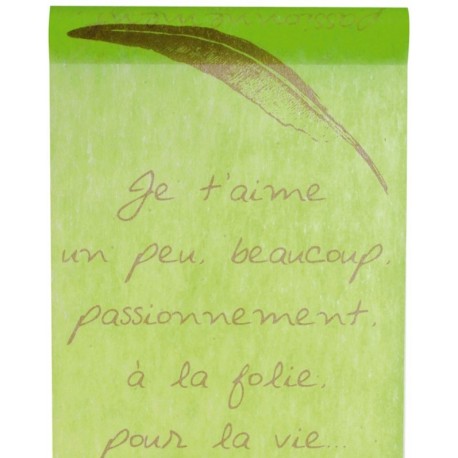 passionnement
Je t'aime
un peu, beaucoup,
passionnement,
à la folie,
pour la vie...